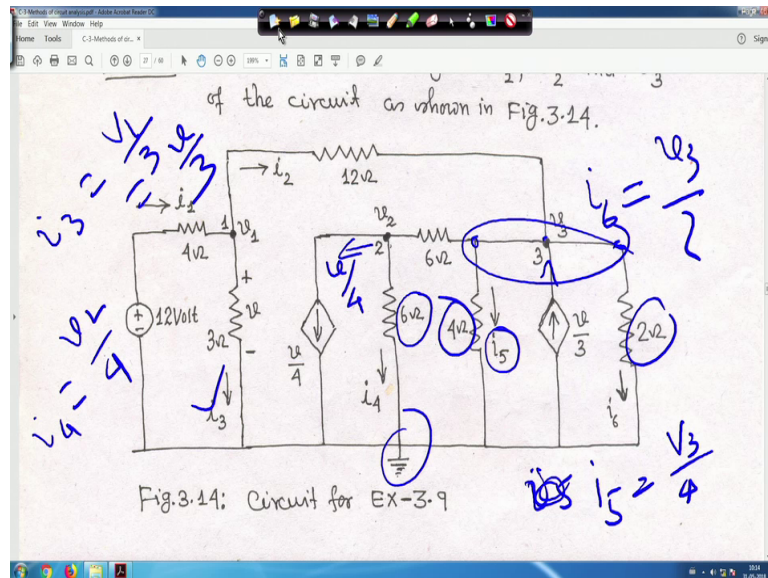 C-3-Methods of circuit analysis.pdf - Adobe Acrobat Reader DC
File Edit View Window Help
Home Tools C-3-Methods of cir... × Sign
27 / 60
of the circuit as shown in Fig.3.14.
i3 = V1/3 = v/3
i1
i2
12Ω
i6 = v3/2
4Ω
1 v1
v2
2
6Ω
v3
3
v/4
12Volt
+
-
+
v
-
3Ω
v/4
6Ω
4Ω
i5
v/3
2Ω
i4 = v2/4
i3
i4
i6
Fig.3.14: Circuit for EX-3.9
i5 = V3/4
10:14